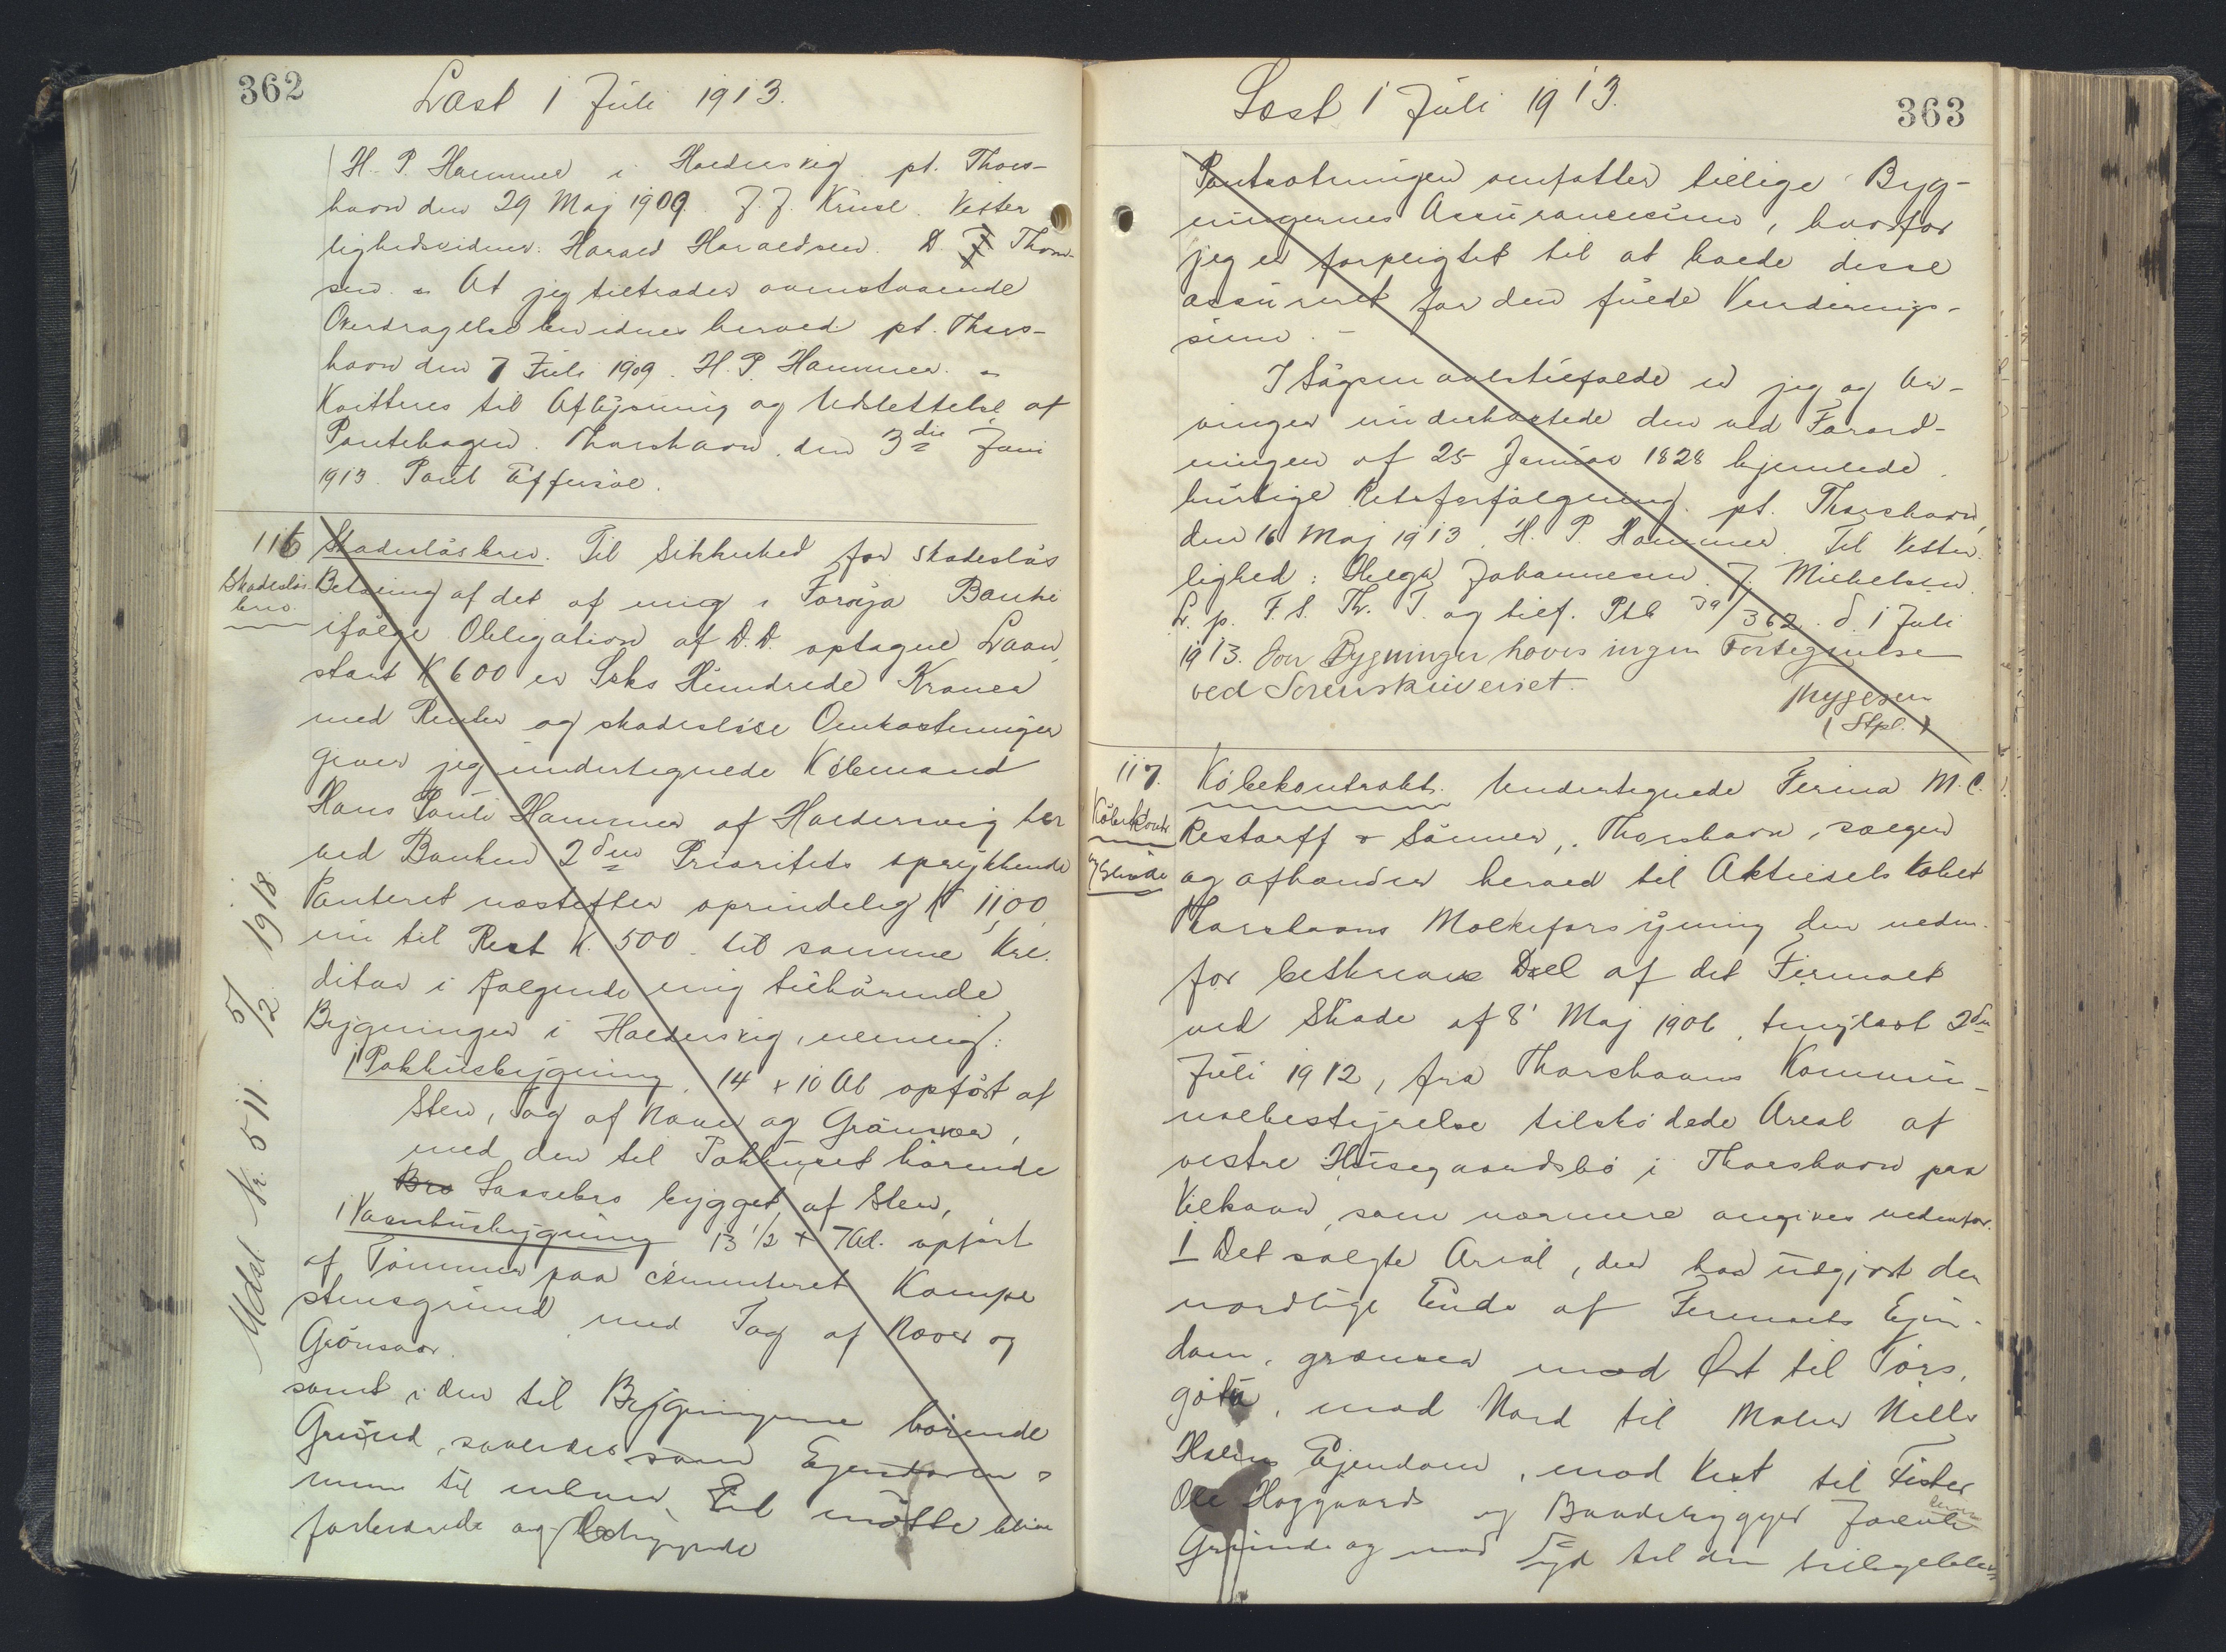 362
Læst 1 Juli 1913.
H. P. Hammer i Haldersvig pt. Thors-
havn den 29 Maj 1909. J. J. Kruse. Vitter
lighedsvidner: Harald Haraldsen. D. Thom-
sen. = At jeg tiltræder ovenstaaende
Overdragelse bevidnes herved. pt. Thors-
havn den 7 Juli 1909. H. P. Hammer. =
Kvitteres til Aflysning og Udslettelse af
Pantebogen. Thorshavn, den 3die Juni
1913. Poul Effersöe.
116
Skadeslös
brev.
Skadeslösbrev. Til Sikkerhed for skadeslös
Betaling af det af mig i Föroya Banki
ifölge Obligation af D.D. optagne Laan,
stort K 600 er Seks Hundrede Kroner
med Renter og skadeslöse Omkostninger
giver jeg undertegnede Köbmand
Hans Pauli Hammer af Haldersvig her
ved Banken 2den Prioritets oprykkende
Panteret næstefter oprindelig K 1100,
nu til Rest K. 500 til samme Kre-
ditor i fölgende mig tilhörende
Bygninger i Haldersvig, nemlig:
1 Pakhusbygning. 14 x 10 Al opfört af
Sten, Tag af Næver og Grönsvær,
med den til Pakhuset hörende
Bro Lossebro bygget af Sten,
1 Vaanhusbygning 13 1/2 x 7 Al. opfört
af Tömmer paa cementeret Kampe
stensgrund med Tag af Næver og
Grönsvær.
samt i den til Bygningerne hörende
Grund, saaledes som Ejendom =
mene til enhver Tid maatte blive
forbedrede og bebyggede
Udsl Nr. 511. 5/2 1918.
363
Læst 1 Juli 1913.
Pantsætningen omfatter tillige Byg-
ningernes Assurancesum, hvorfor
jeg er forpligtet til at holde disse
assureret for den fulde Vurderings-
sum. -
I Sögsmaalstilfælde er jeg og Ar-
vinger underkastede den ved Forord-
ningen af 25 Januar 1828 hjemlede
hurtige Retsforfölgning. pt. Thorshavn,
den 16 Maj 1913. H. P. Hammer. Til Vitter
lighed: Helga Johannesen. J. Michelsen.
L. p. F. S. Th. T. og tilf. Ptb 39/362. d. 1 Juli
1913. Over Bygninger haves ingen Fortegnelse
ved Sorenskriveriet.
Thygesen
(Stpl.)
117.
Köbekontr.
og Skøde
Köbekontrakt. Undertegnede Firma M. C.
Restorff & Sönner, Thorshavn, sælger
og afhænder herved til Aktieselskabet
Thorshavns Mælkeforsyning den neden-
for beskrevne Del af det Firmaet
ved Skøde af 8' Maj 1906, tinglæst 2den
Juli 1912, fra Thorshavns Kommu-
nalbestyrelse tilsködede Areal af
vestre Husegaardsbö i Thorshavn paa
Vilkaar, som nærmere angives nedenfor.
1 Det solgte Areal, der har udgjort den
nordlige Ende af Firmaets Ejen-
dom, grænser mod Øst til Törs,
götü, mod Nord til Maler Niels
Holms Ejendom, mod Vest til Fisker
Ole Hoggaards og Baadebygger
Grunde og mod Syd til den